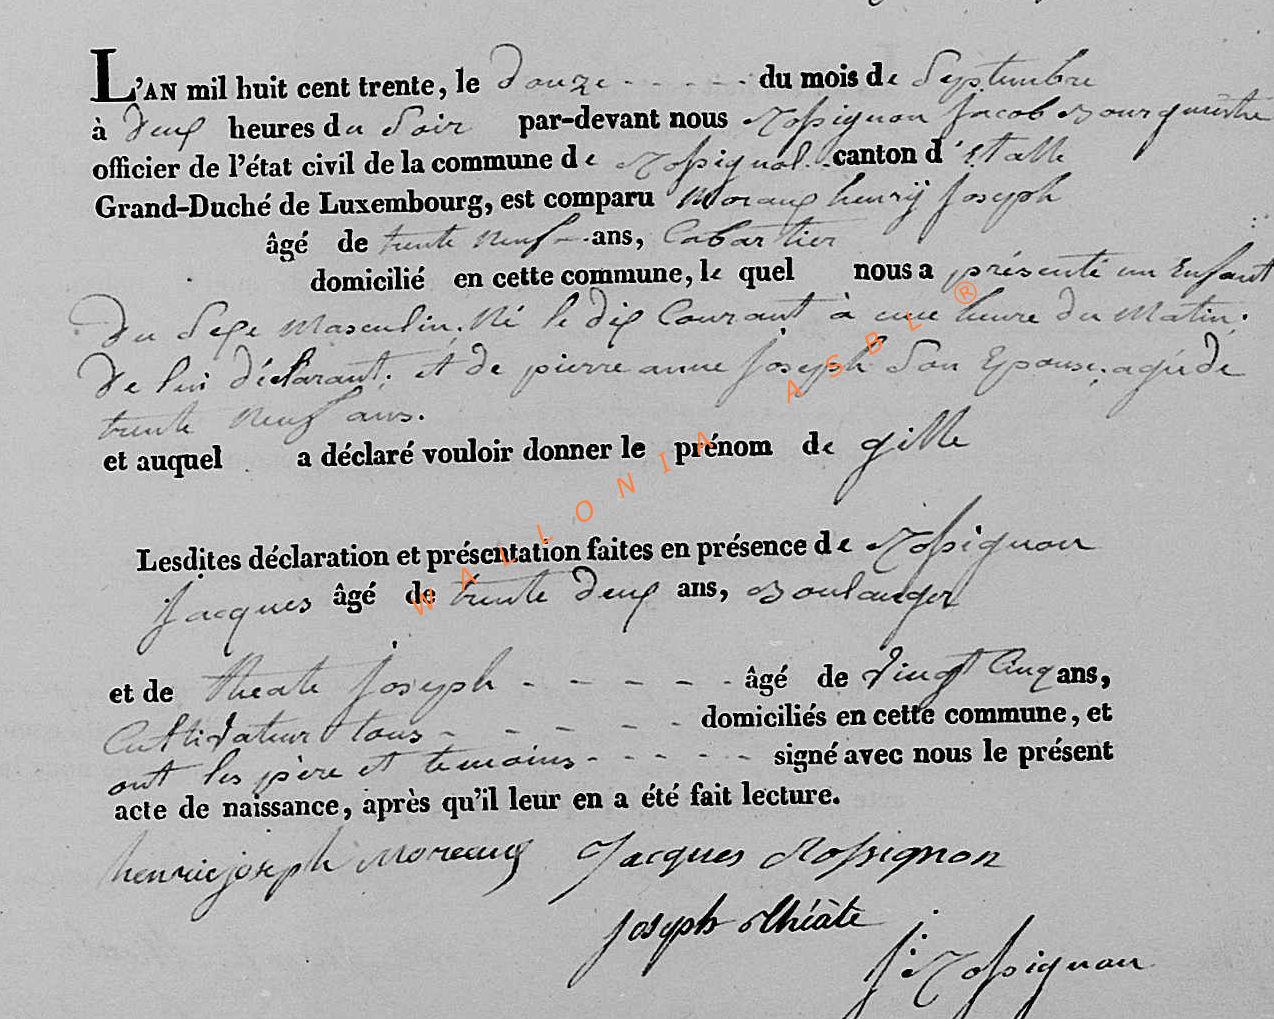 L'AN mil huit cent trente, le douze - - - - - du mois de Septembre
à deux heures du Soir par-devant nous Rossignon Jacob Bourguestre
officier de l'état civil de la commune de Rossignol canton d'Etalle
Grand-Duché de Luxembourg, est comparu Moraux henrÿ Joseph
âgé de trente neuf - ans, Cabartier
domicilié en cette commune, le quel nous a présenté un Enfant
du Sexe Masculin, Né le dix Courant à une heure du Matin,
de lui déclarant. et de pierre anne Joseph Son Epouse, agée de
trente neuf ans.
et auquel a déclaré vouloir donner le prénom de gille
Lesdites déclaration et présentation faites en présence de Rossignon
Jacques âgé de trente deux ans, Boulanger
et de theate Joseph - - - - - - âgé de vingt Cinq ans,
Cultivateur tous - - - - - domiciliés en cette commune, et
ont les père et temoins - - - - - signé avec nous le présent
acte de naissance, après qu'il leur en a été fait lecture.
henrie joseph Moreaux Jacques Rossignon
Joseph thiàte
J: Rossignon
WALLONIA ASBL ®